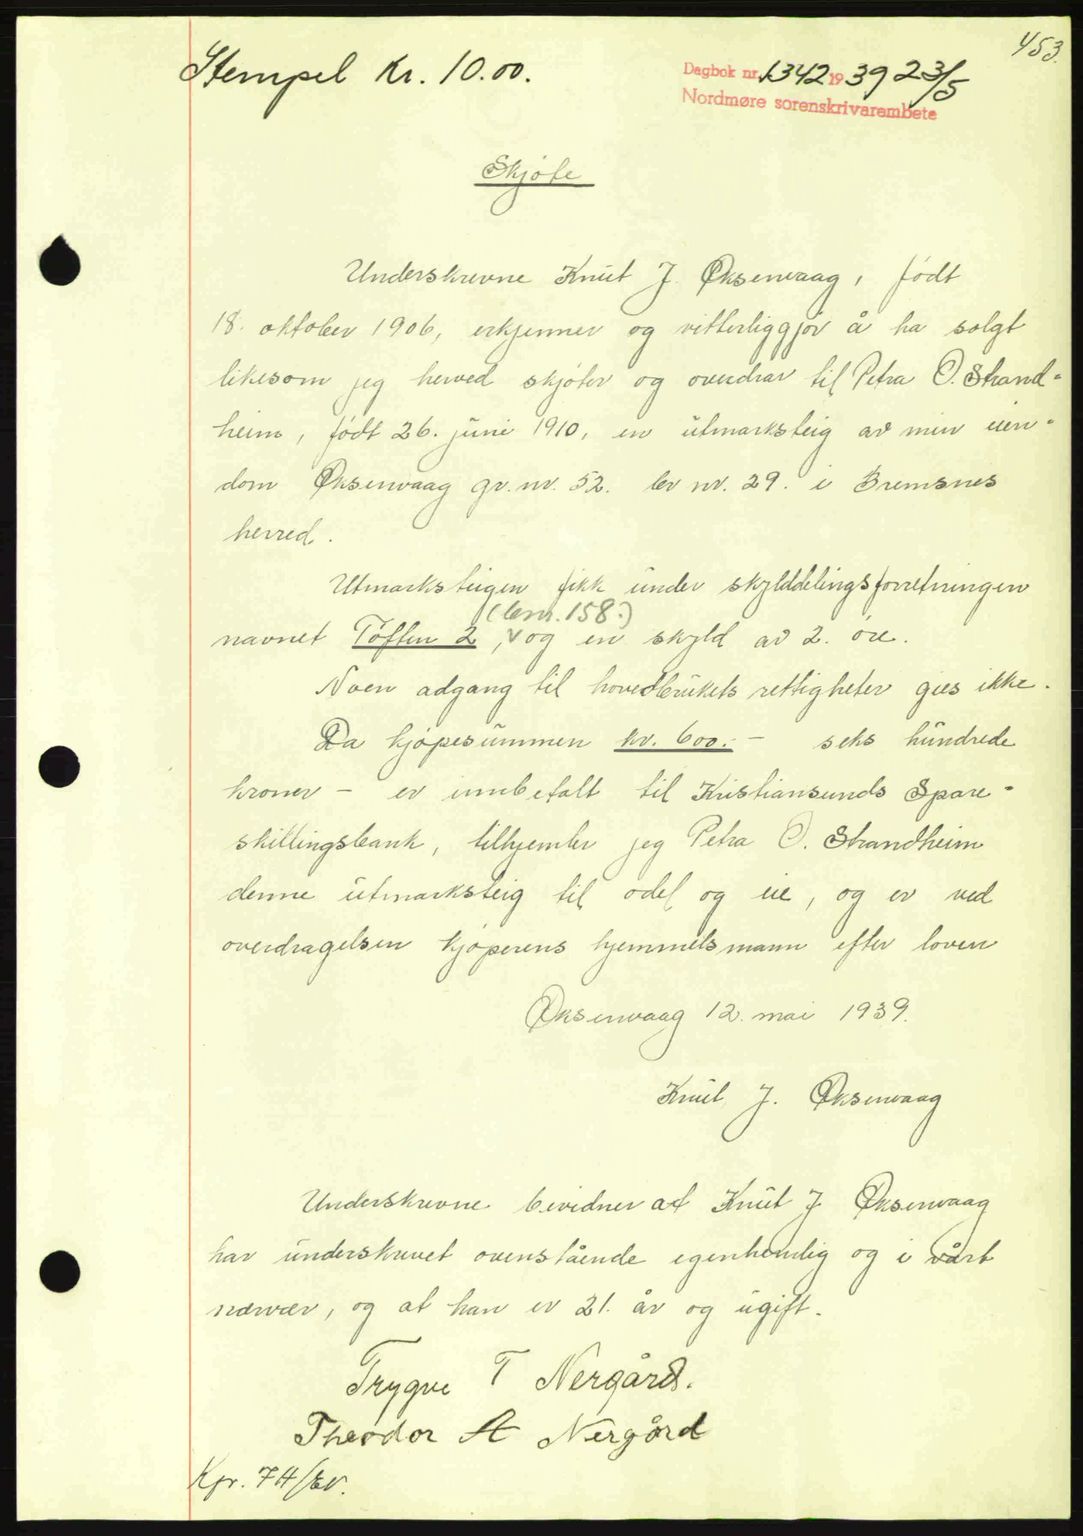 453.
Stempel Kr. 10.00.
Dagbok nr. 1342 1939 23/5
Nordmøre sorenskrivarembete
Skjøte
Underskrevne Knut J. Øksenvaag, født
18. oktober 1906, erkjenner og vitterliggjør å ha solgt
likesom jeg herved skjøter og overdrar til Petra O. Strand-
heim, født 26. juni 1910, en utmarksteig av min eien-
dom Øksenvaag gr. nr. 52. br nr. 29. i Bremsnes
herred.
Utmarksteigen fikk under skylddelingsforretningen
(br.nr. 158.)
navnet Tøften 2, v og en skyld av 2. øre.
Noen adgang til hovedbrukets rettigheter gies ikke.
Da kjøpesummen kr. 600.- – seks hundrede
kroner – er innbetalt til Kristiansunds Spare-
skillingsbank, tilhjemler jeg Petra O. Strandheim
denne utmarksteig til odel og eie, og er ved
overdragelsen kjøperens hjemmelsmann efter loven
Øksenvaag 12. mai 1939.
Knut J. Øksenvaag
Underskrevne bevidner at Knut J Øksenvaag
har underskrevet ovenstående egenhendig og i vårt
nærvær, og at han er 21. år og ugift.
Trygve T Nergård.
Theodor A Nergård
Kpr. 74/